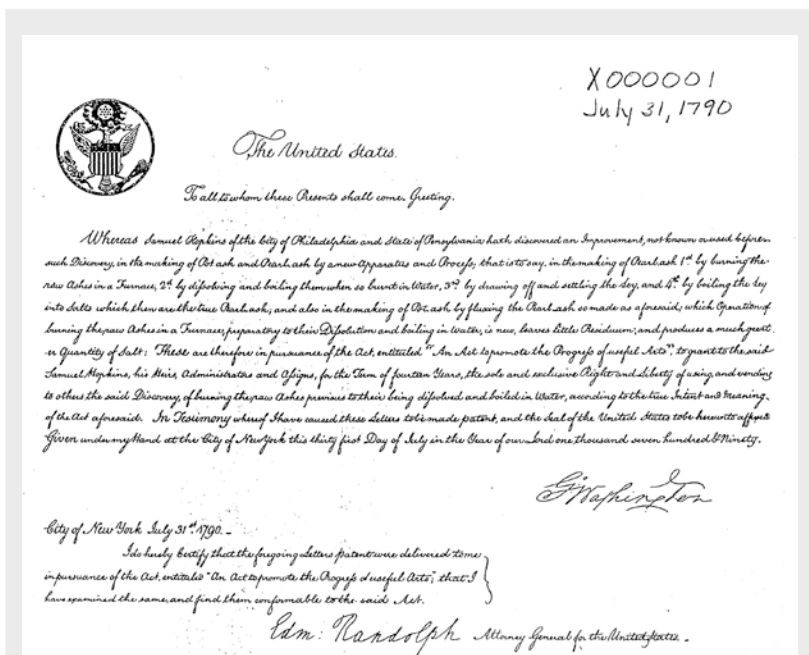 X000001
July 31, 1790
The United States.
To all to whom these Presents shall come, Greeting.
Whereas Samuel Hopkins of the City of Philadelphia and State of Pensylvania hath discovered an Improvement, not known or used before
such Discovery, in the making of Pot ash and Pearl ash by a new Apparatus and Process; that is to say, in the making of Pearl ash 1st. by burning the
raw Ashes in a Furnace, 2d. by dissolving and boiling them when so burnt in Water, 3rd. by drawing off and settling the Ley, and 4th. by boiling the Ley
into Salts which then are the true Pearl ash; and also in the making of Pot ash by fluxing the Pearl ash so made as aforesaid; which Operation of
burning the raw Ashes in a Furnace, preparatory to their Dissolution and boiling in Water, is new, leaves little Residuum; and produces a much great
er Quantity of Salt: These are therefore in pursuance of the Act, entituled "An Act to promote the Progress of useful Arts", to grant to the said
Samuel Hopkins, his Heirs, Administrators and Assigns, for the Term of fourteen Years, the sole and exclusive Right and Liberty of using, and vending
to others the said Discovery, of burning the raw Ashes previous to their being dissolved and boiled in Water, according to the true Intent and Meaning
of the Act aforesaid. In Testimony whereof I have caused these Letters to be made patent, and the Seal of the United States to be hereunto affixed
Given under my Hand at the City of New York this thirty first Day of July in the Year of our Lord one thousand seven hundred & Ninety.
G Washington
City of New York July 31st. 1790. -
I do hereby Certify that the foregoing Letters patent were delivered to me
in pursuance of the Act, entituled "An Act to promote the Progress of useful Arts"; that I
have examined the same, and find them conformable to the said Act.
Edm: Randolph Attorney General for the United States. -